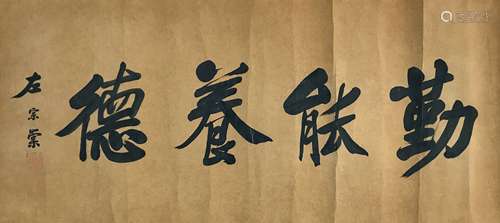 勤能養德
左宗棠